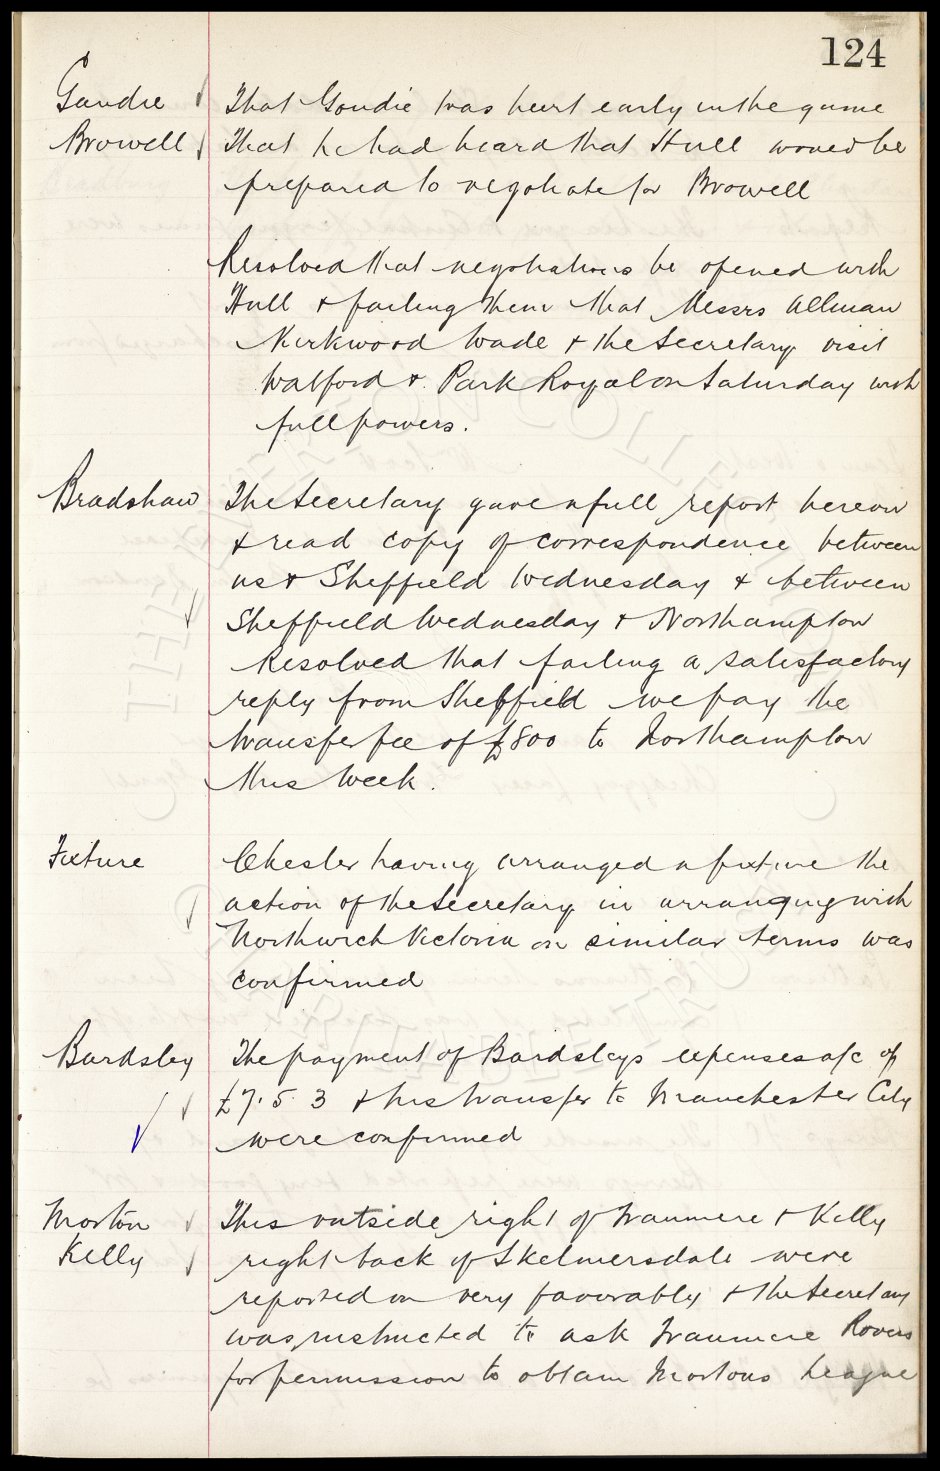 124
Goudie That Goudie was hurt early in the game
Browell That he had heard that Hull would be
prepared to negotiate for Browell
Resolved that negotiations be opened with
Hull & failing them that Messrs Allman
Kirkwood Wade & the Secretary visit
Watford & Park Royal on Saturday with
full powers.
Bradshaw The Secretary gave a full report hereon
& read copy of correspondence between
us & Sheffield Wednesday & between
Sheffield Wednesday & Northampton
Resolved that failing a satisfactory
reply from Sheffield we pay the
transfer fee of £800 to Northampton
this week.
Fixture Chester having arranged a fixture the
action of the Secretary in arranging with
Northwich Victoria on similar terms was
confirmed
Bardsley The payment of Bardsleys expenses a/c of
£7. 5. 3 & his transfer to Manchester City
were confirmed
Morton This outside right of Tranmere & Kelly
Kelly right back of Skelmersdale were
reported on very favorably & the Secretary
was instructed to ask Tranmere Rovers
for permission to obtain Mortons League